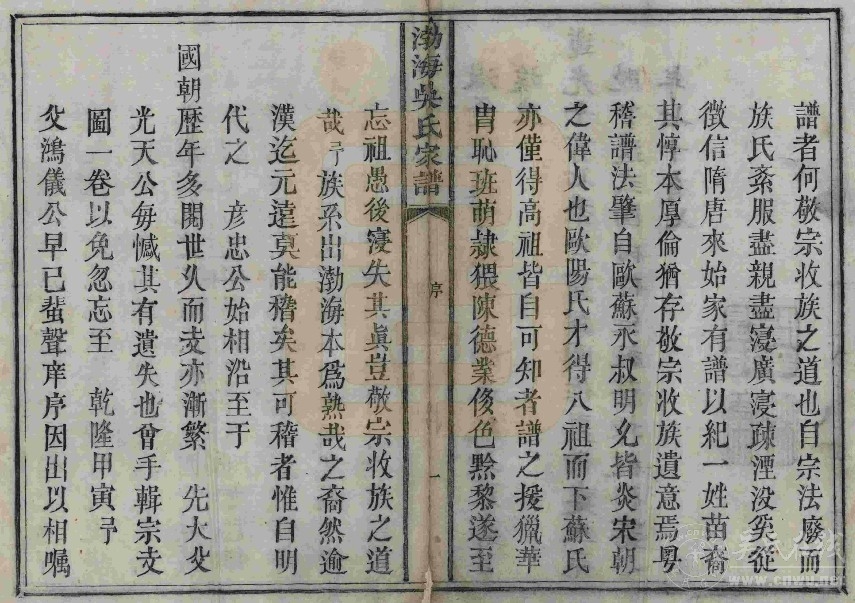 譜者何敬宗收族之道也自宗法廢而
族氏紊服盡親盡寖廣寖疎湮没奚從
徵信隋唐來始家有譜以紀一姓苗裔
其惇本厚倫猶存敬宗收族遺意焉粤
稽譜法肇自歐蘇永叔明允皆炎宋朝
之偉人也歐陽氏才得八祖而下蘇氏
亦僅得高祖皆自可知者譜之援獵華
胄恥班萌隸猥陳德業俊色黙黎遂至
渤海吳氏家譜
序
一
忘祖愚後寖失其眞豈敬宗收族之道
哉予族系出渤海本爲熟哉之裔然逾
漢迄元遠莫能稽矣其可稽者惟自明
代之 彦忠公始相沿至于
國朝歴年多閱世久而支亦漸繁 先大父
光天公每憾其有遺失也曾手輯宗支
圖一卷以免忽忘至 乾隆甲寅予
父鴻儀公早已蜚聲庠序因出以相嘱
www.cnwu.net